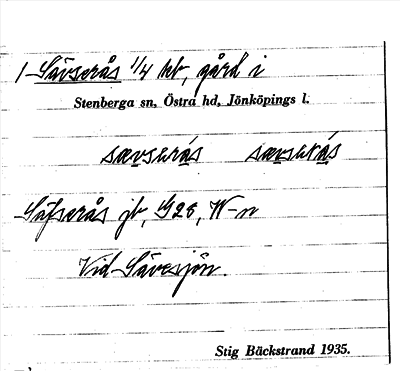 1 Sävserås 1/4 ht, gård i
Stenberga sn, Östra hd, Jönköpings l.
sævserås sævskås
Säfserås jb, W-n
Vid Sävesjön.
Stig Bäckstrand 1935.